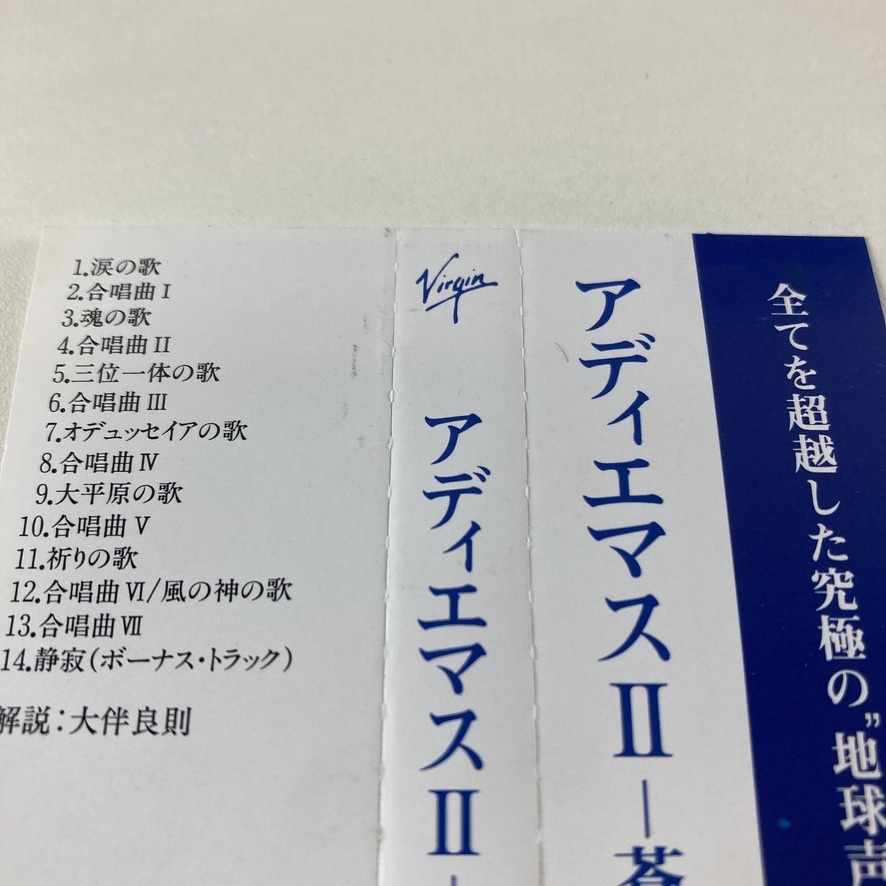 1.涙の歌
2.合唱曲Ⅰ
3.魂の歌
4.合唱曲Ⅱ
5.三位一体の歌
6.合唱曲Ⅲ
7.オデュッセイアの歌
8.合唱曲Ⅳ
9.大平原の歌
10.合唱曲Ⅴ
11.祈りの歌
12.合唱曲Ⅵ/風の神の歌
13.合唱曲Ⅶ
14.静寂(ボーナス・トラック)
解説:大伴良則
Virgin
アディエマスⅡ－
アディエマスⅡ－蒼
全てを超越した究極の”地球声